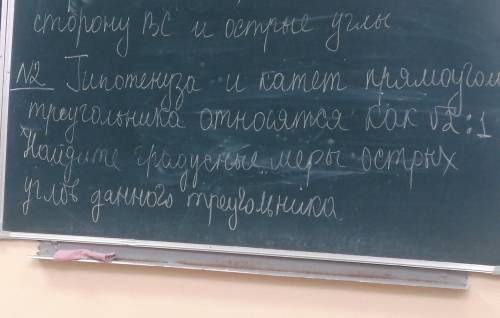 сторону ВС и острые углы
№2 Гипотенуза и катет прямоугол
треугольника относятся как √2:1
Найдите градусные меры острых
углов данного треугольника.